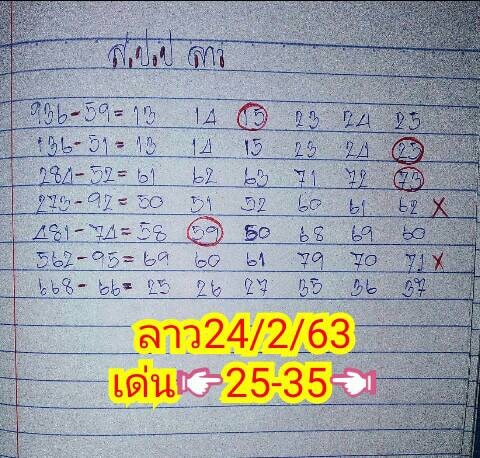 ส.ป.ป ลาว
936-59=13 14 15 23 24 25
136-51=13 14 15 23 24 25
284-52=61 62 63 71 72 73
273-92=50 51 52 60 61 62 X
481-74=58 59 50 68 69 60
562-95=69 60 61 79 70 71 X
668-66=25 26 27 35 36 37
ลาว24/2/63
เด่น👉25-35👈